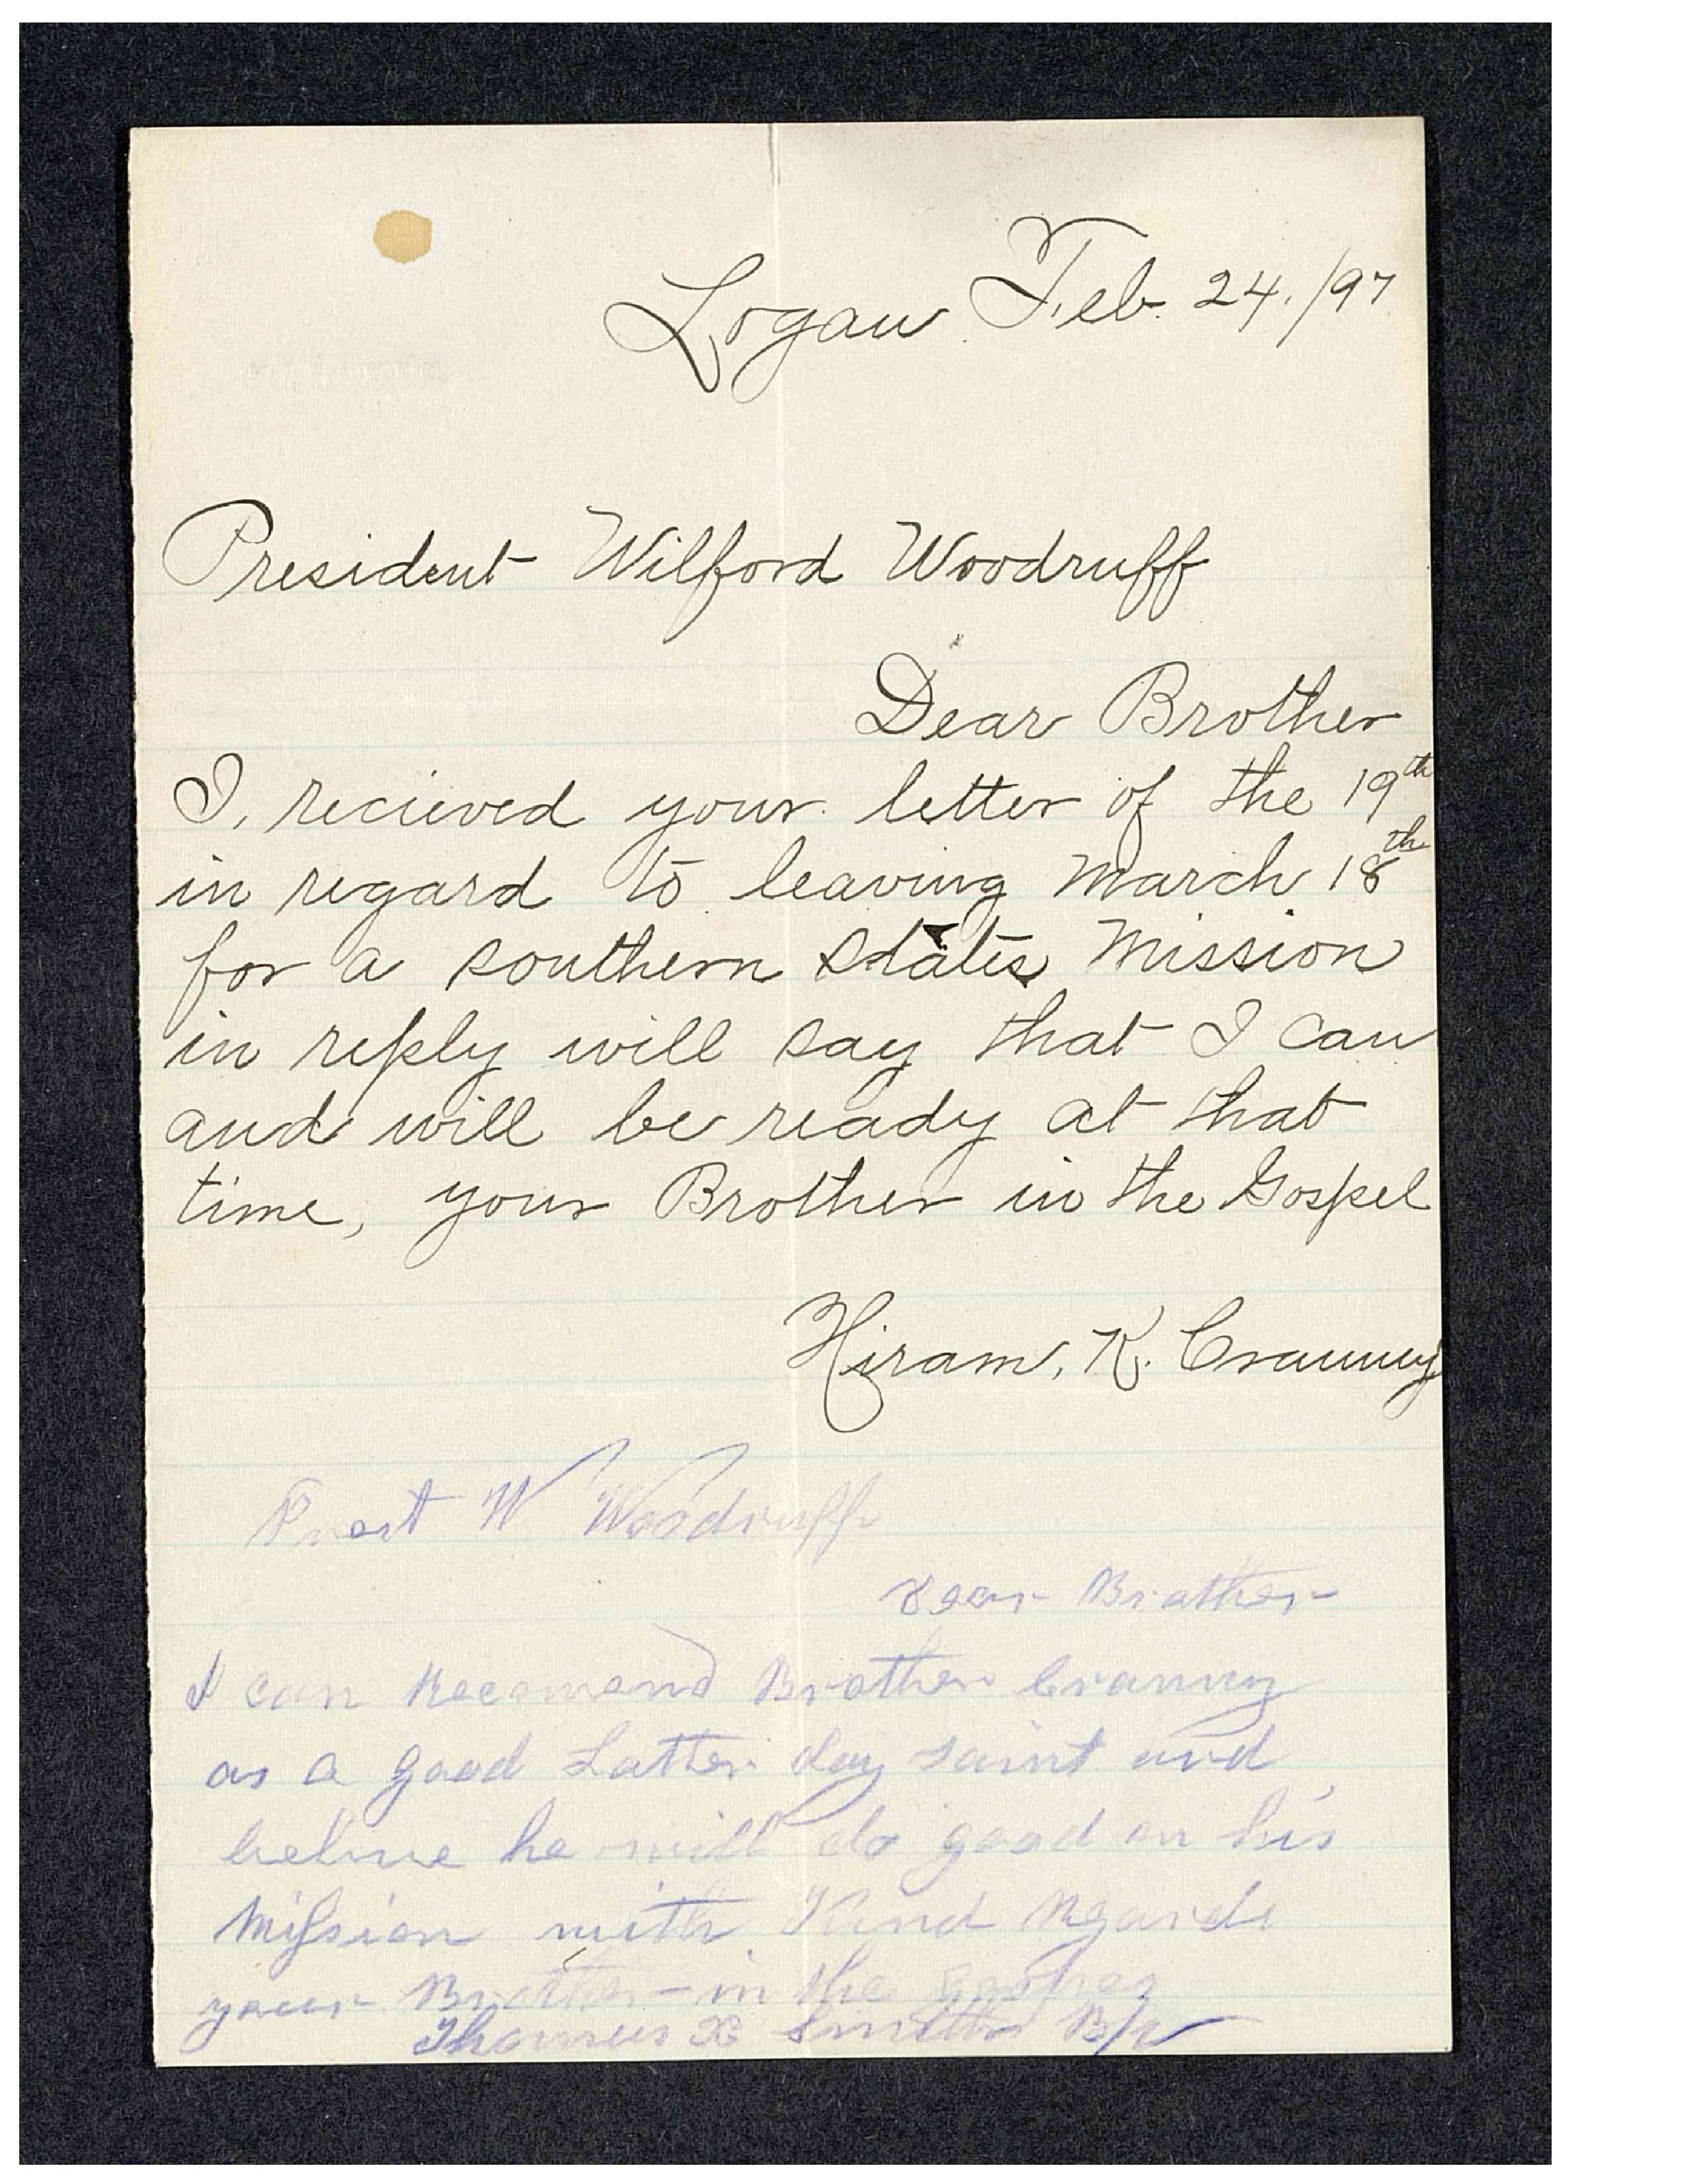 Logan Feb. 24./97
President Wilford Woodruff
Dear Brother
I, recieved your letter of the 19th
in regard to leaving March 18th
for a southern states mission
in reply will say that I can
and will be ready at that
time, your Brother in the Gospel
Hiram, K. Cranney
Prest W Woodruff
Dear Brother
I can Recomend Brother Cranny
as a good Latter day saint and
believe he will do good on his
Mission with Kind Regards
your Brother in the
Thomas X Smith Bp